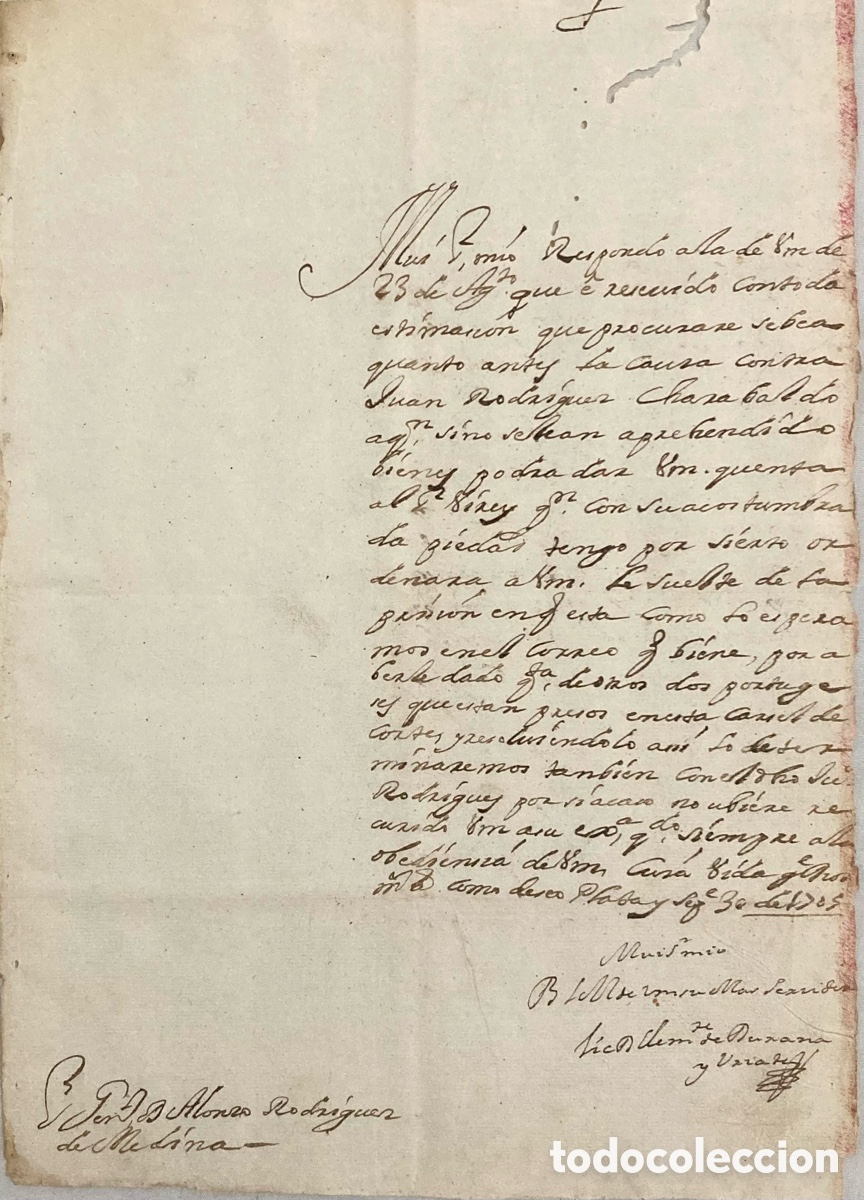 Mui S.r mio Respondo a la de Vm de
23 de Ag.to que e resevido con toda
estimasion que procurare se bea
quanto antes la causa contra
Juan Rodriguez Charabaldo
a q.n, si no se ean aprehendido
bienes podra dar Vm. quenta
al S.r Virey q.n con su acostumbra
da piedad tengo por sierto or
denara a Vm. le suelte de la
prision en q esta como lo espera
mos en el correo q biene, por a
berle dado q.ta de otros dos portuge
ses que estan presos en esta carsel de
corte, y resolviendolo asi lo deter
minaremos tanbien con el dho Ju.
Rodrigues por si acaso no ubiere re
curido Vm a su ex.a, q.do siempre a la
obediensia de Vm, Cuia Vida g.e
m.s a.s como deseo Plata y Sep.e 30 de 1705
Mui S.r mio
B L M de Vm su Mas Servidor
Lic D Clem.te de Durana
y Uriarte
S.r D Alonzo Rodriguez
de Medina
todocoleccion